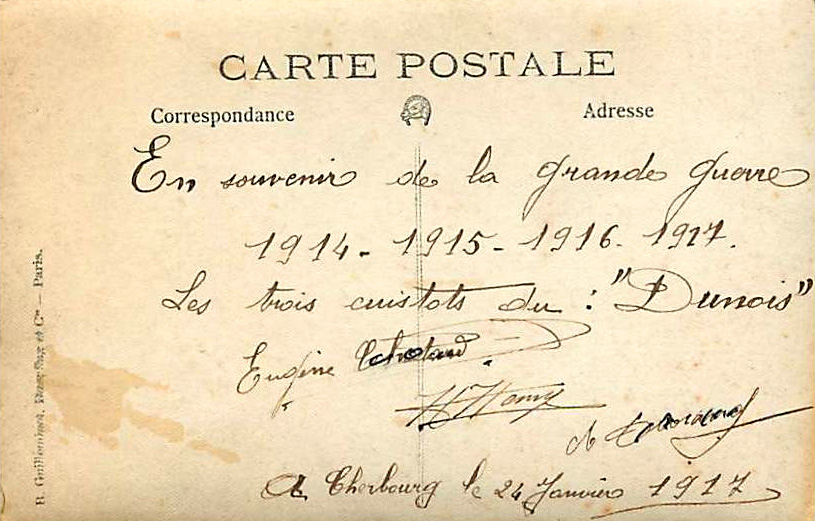 CARTE POSTALE
Correspondance
Adresse
En souvenir de la grande guerre
1914 - 1915 - 1916 - 1917.
Les trois cuistots du : "Dunois"
Eugène
H Hamy
A
A Cherbourg le 24 Janvier 1917
R. Guilleminot, et Cie — Paris.